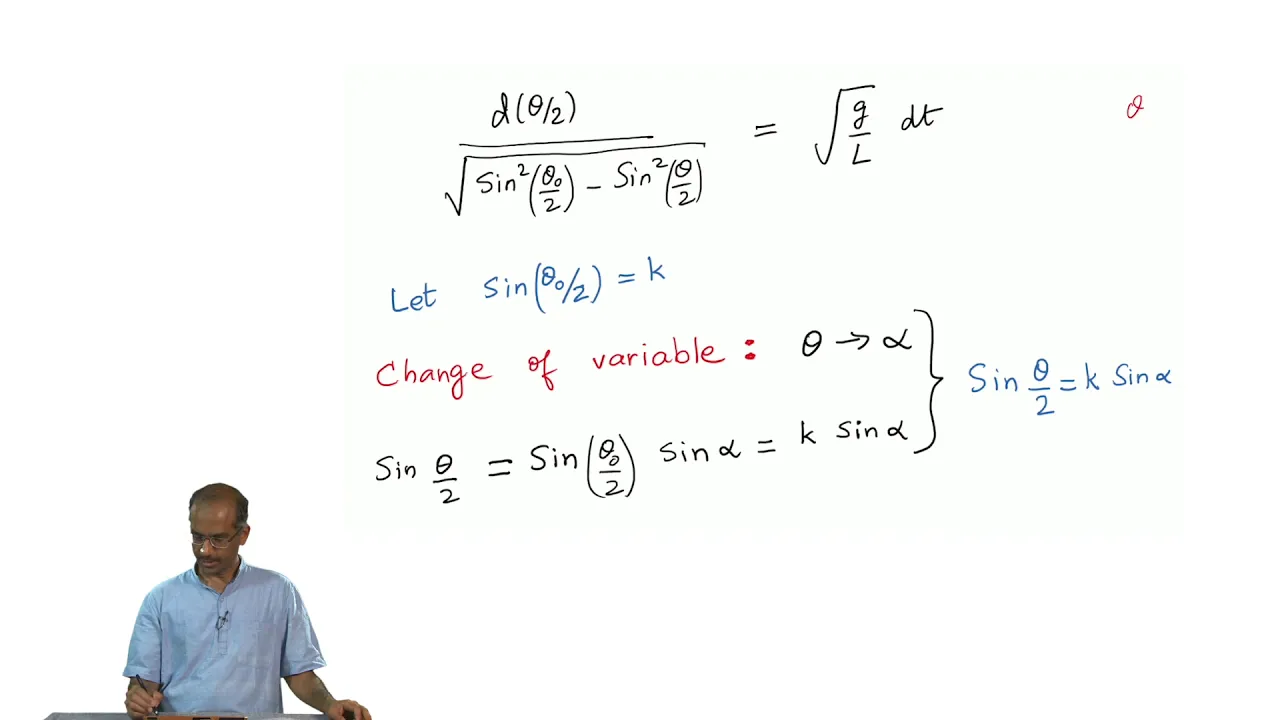 d(θ/2) / √(Sin²(θ₀/2) − Sin²(θ/2)) = √(g/L) dt
θ
Let Sin(θ₀/2) = k
Change of variable : θ → α
Sin θ/2 = k Sin α
Sin θ/2 = Sin(θ₀/2) Sin α = k Sin α